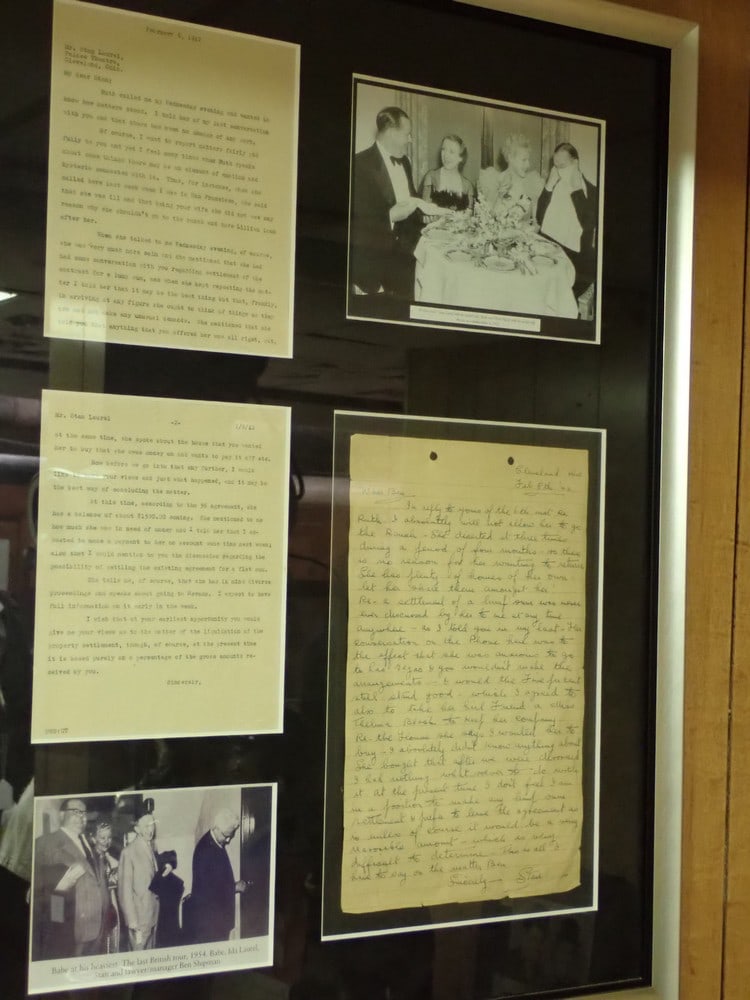 February 6, 1942
Mr. Stan Laurel,
Palace Theatre,
Cleveland, Ohio.
My dear Stan:
Ruth called me up Wednesday evening and wanted to
know how matters stood. I told her of my last conversation
with you and that there has been no change of any sort.
Of course, I want to report matters fairly and
fully to you and yet I feel many times when Ruth speaks
about some things there may be an element of emotion and
hysteria connected with it. Thus, for instance, when she
called here last week when I was in San Francisco, she said
that she was ill and that being your wife she did not see any
reason why she shouldn't go to the ranch and have Lillian look
after her.
When she talked to me Wednesday evening, of course,
she was very much more calm and she mentioned that she had
had some conversation with you regarding settlement of the
contract for a lump sum, and when she kept repeating the mat-
ter I told her that it may be the best thing but that, frankly,
in arriving at any figure she ought to think of things so that
make any unusual demands. She mentioned that she
told you that anything that you offered her was all right, but,
Mr. Stan Laurel -2- 2/6/42
at the same time, she spoke about the house that you wanted
her to buy that she owes money on and wants to pay it off etc.
Now before we go into that any further, I would
like your views and just what happened, and it may be
the best way of concluding the matter.
At this time, according to the 5% agreement, she
has a balance of about owing. She mentioned to me
how much she was in need of money and I told her that I ex-
pected to make a payment to her on account some time next week;
also that I would mention to you the discussion regarding the
possibility of settling the existing agreement for a flat sum.
She tells me, of course, that she has in mind divorce
proceedings and speaks about going to Nevada. I expect to have
full information on it early in the week.
I wish that at your earliest opportunity you would
give me your views as to the matter of the liquidation of the
property settlement, though, of course, at the present time
it is based purely on a percentage of the gross amounts re-
ceived by you.
Sincerely,
Cleveland
Feb 8th '42
Dear Ben
In reply to yours of the 6th inst Re
Ruth. I absolutely will not allow her to go
the Ranch - She deserted it three times
during a period of four months - so there
is no reason for her wanting to return
She has plenty of houses of her own
let her share them amongst her
Re - a settlement of a lump sum was never
ever discussed by her to me at any time
anywhere - As I told you in my last - Her
conversation on the Phone here was to
the effect that she was anxious to go
to Las Vegas & you wouldn't make the
arrangements - & would the Five percent
still stand good - which I agreed to
also to like her girl Friend a Miss
Thelma to keep her company
Re - the House she says I wanted her to
buy - I absolutely didn't know anything about
She bought that after we were divorced
I had nothing whatsoever to do with
it. At the present time I don't feel I am
in a position to make any lump sum
settlement & prefer to leave the agreement as
is unless of course it would be a very
reasonable amount - which is very
difficult to determine. This is all I
have to say on the matter Ben
Sincerely - Stan
'Babe at his heaviest. The last British tour, 1954. Babe, Ida Laurel,
Stan and lawyer/manager Ben Shipman